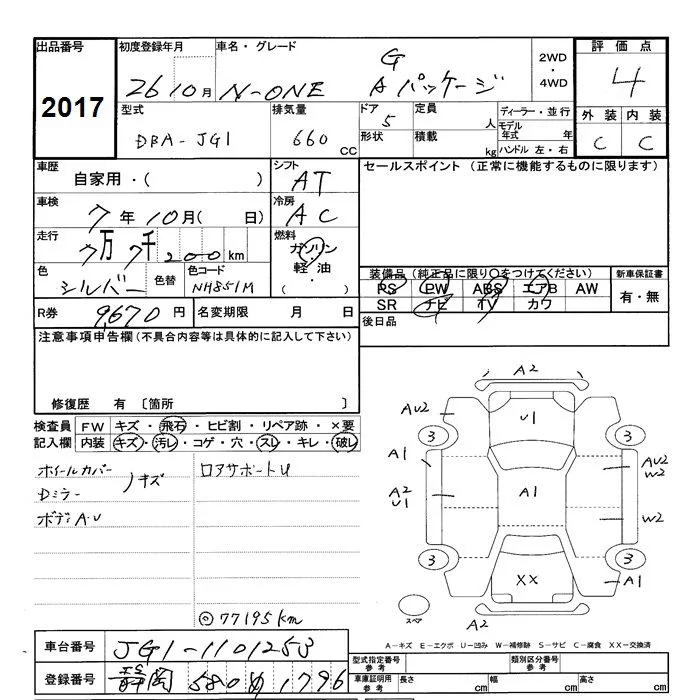 出品番号 初度登録年月 車名・グレード 2WD ・ 4WD 評価点
2017 26 10月 N-ONE G Aパッケージ 4
型式 排気量 ドア 定員 ディーラー・並行 外装 内装
DBA-JG1 660 CC 5 人 モデル年式 年 C C
形状 積載 kg ハンドル 左・右
車歴 自家用・( ) シフト AT セールスポイント (正常に機能するものに限ります)
車検 7年10月( 日) 冷房 AC
走行 7万7千200km 燃料 ガソリン・軽油・( )
色 シルバー 色替 色コード NH851M
装備品 (純正品に限り○をつけてください) 新車保証書
PS PW ABS エアB AW 有・無
SR ナビ TV カワ
R券 9,670円 名変期限 月 日 後日品
注意事項申告欄(不具合内容等は具体的に記入して下さい)
修復歴 有 〔箇所 〕
検査員 FW キズ・飛石・ヒビ割・リペア跡・×要
記入欄 内装 キズ・汚レ・コゲ・穴・スレ・キレ・破レ
ホイールカバー ロアサポートU
Dミラー キズ
ボディA.U
◎77195km
A2
AU2 U1
3 3
A1 AU2
W2
A2 A1
U1 W2
3 3
XX A1
スペア A2
A-キズ E-エクボ U-凹み W-補修跡 S-サビ C-腐食 XX-交換済
車台番号 JG1-1101253 型式指定番号 参考 類別区分番号 参考
登録番号 静岡 580 1796 車庫証明用 参考 長さ cm 幅 cm 高さ cm